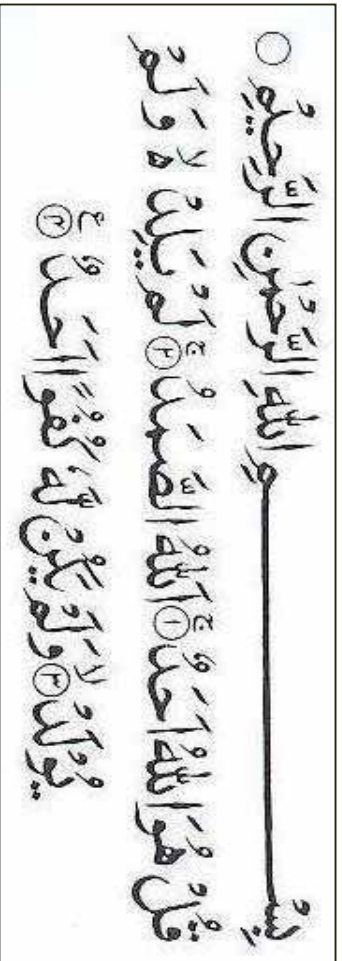 بِسْمِ اللّٰهِ الرَّحْمٰنِ الرَّحِيْمِ ○
قُلْ هُوَ اللّٰهُ اَحَدٌ ۚ ① اَللّٰهُ الصَّمَدُ ۚ ② لَمْ يَلِدْ ۙ ۵ وَلَمْ
يُوْلَدْ ۙ ③ وَلَمْ يَكُنْ لَّهٗ كُفُوًا اَحَدٌ ع